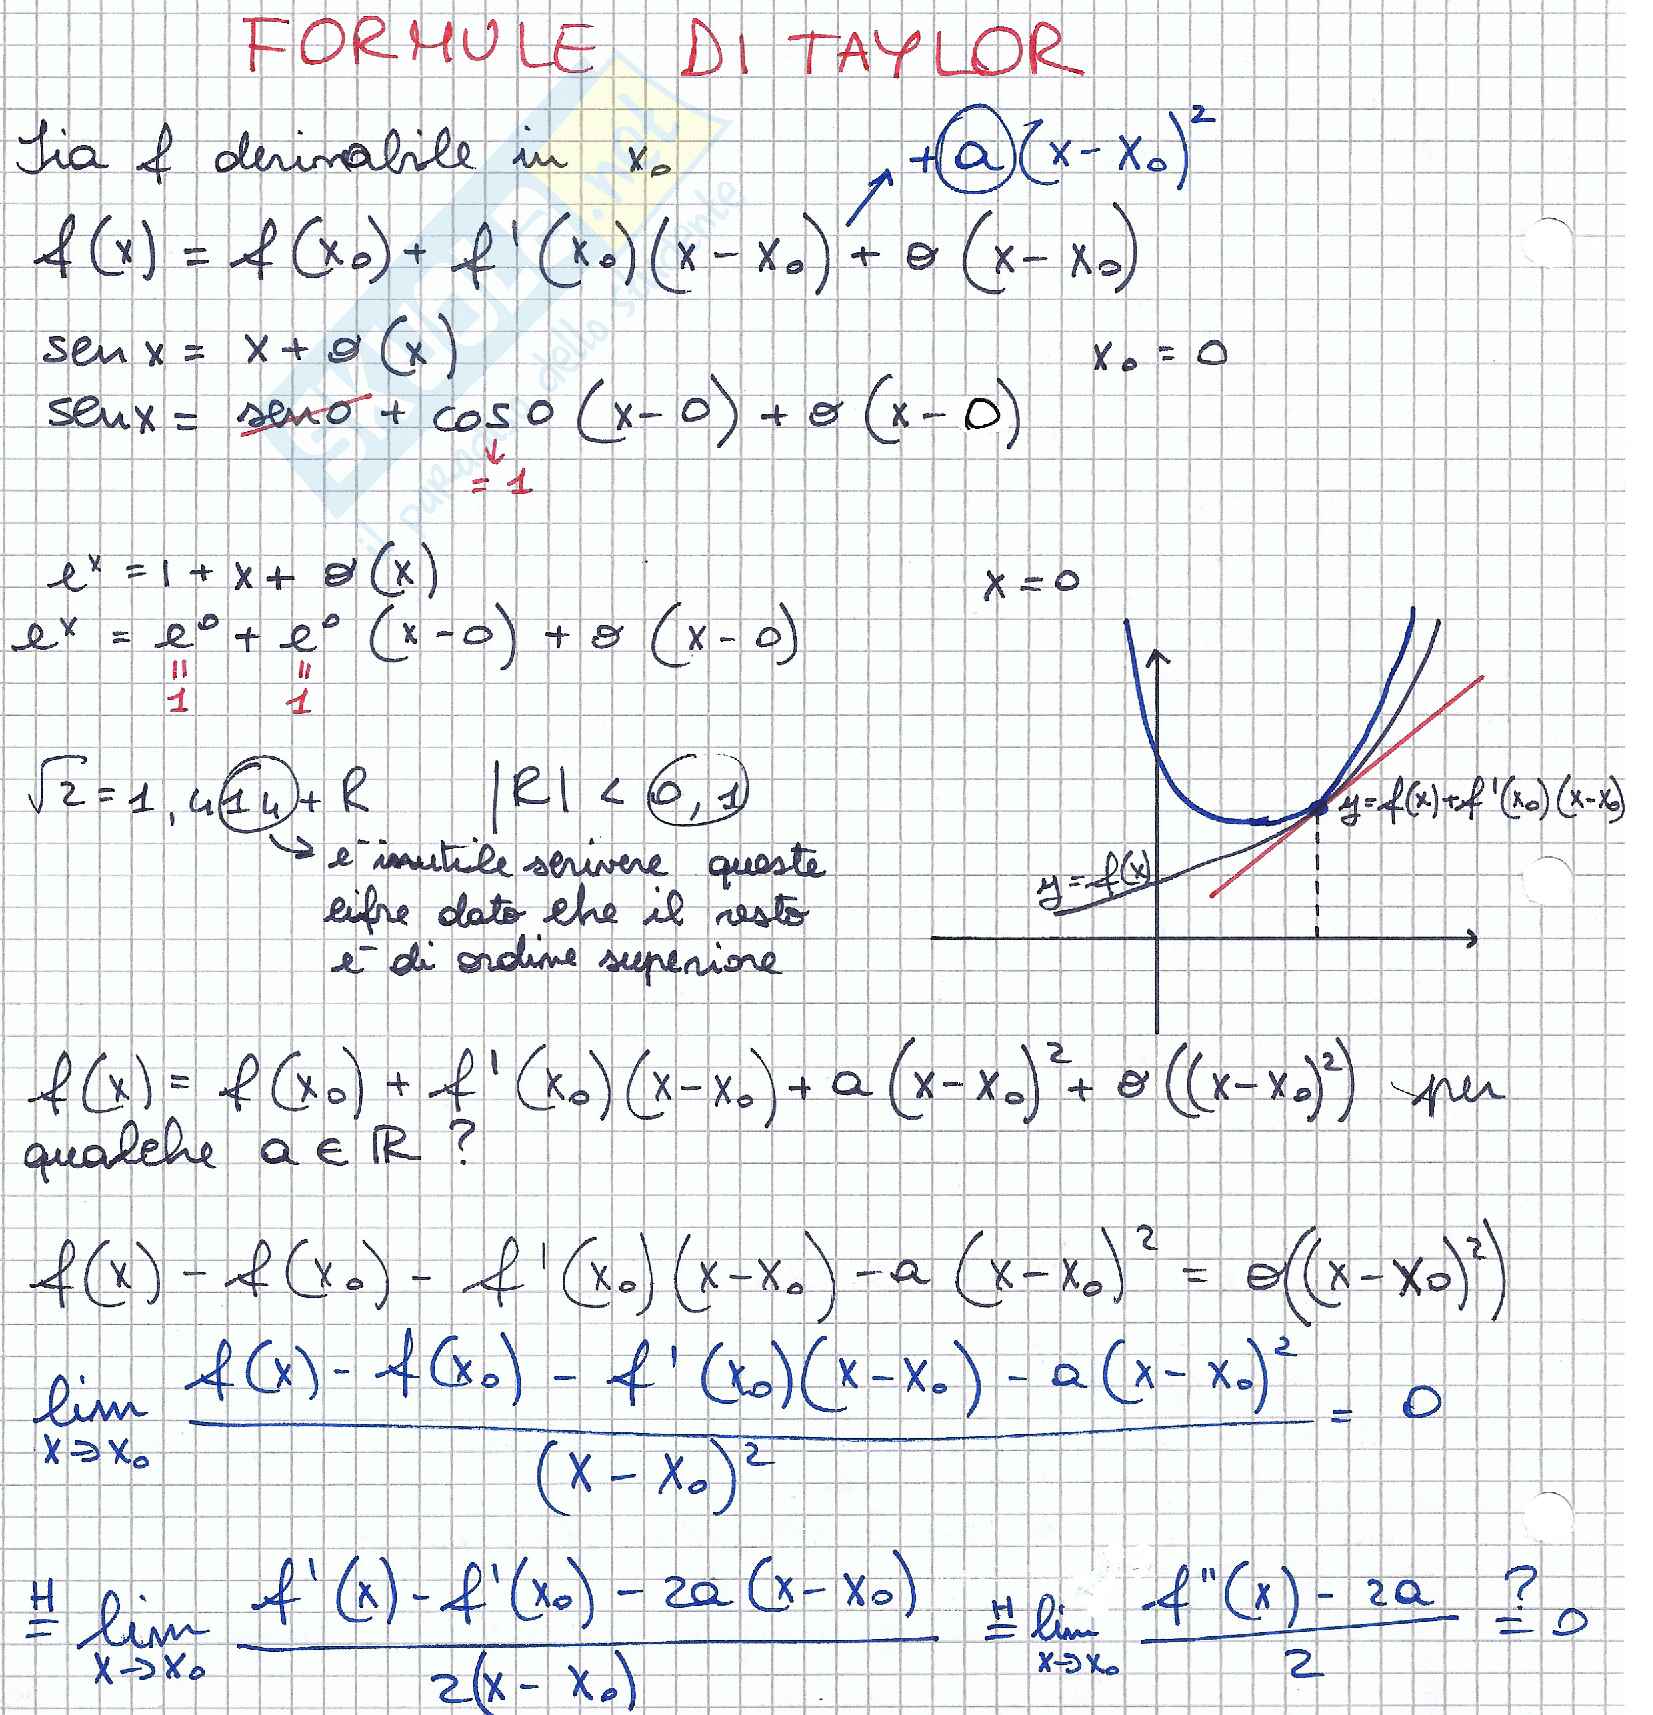 FORMULE DI TAYLOR
Sia f derivabile in x₀
+ a (x - x₀)²
f(x) = f(x₀) + f'(x₀)(x - x₀) + o(x - x₀)
sen x = x + o(x)
x₀ = 0
sen x = sen 0 + cos 0 (x - 0) + o(x - 0)
= 1
eˣ = 1 + x + o(x)
x = 0
eˣ = e⁰ + e⁰ (x - 0) + o(x - 0)
= =
1 1
√2 = 1,414 + R |R| < 0,1
è inutile scrivere queste
cifre dato che il resto
è di ordine superiore
y = f(x) + f'(x₀)(x - x₀)
y = f(x)
f(x) = f(x₀) + f'(x₀)(x - x₀) + a(x - x₀)² + o((x - x₀)²) per
qualche a ∈ ℝ ?
f(x) - f(x₀) - f'(x₀)(x - x₀) - a(x - x₀)² = o((x - x₀)²)
lim x→x₀ [f(x) - f(x₀) - f'(x₀)(x - x₀) - a(x - x₀)²] / (x - x₀)² = 0
H= lim x→x₀ [f'(x) - f'(x₀) - 2a(x - x₀)] / 2(x - x₀) H= lim x→x₀ [f''(x) - 2a] / 2 ?= 0
SKUOLA.net
il paradiso dello studente